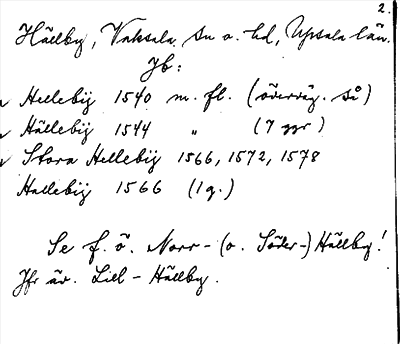 2.
Hällby, Vaksala sn o. hd, Upsala län.
Jb:
Hellebÿ 1540 m. fl. (överväg. så)
Hällebÿ 1544 „ (7 ggr)
Stora Hellebÿ 1566, 1572, 1578
Hallebÿ 1566 (1 g.)
Se f. ö. Norr- (o. Söder-) Hällby!
Jfr äv. Lill-Hällby.